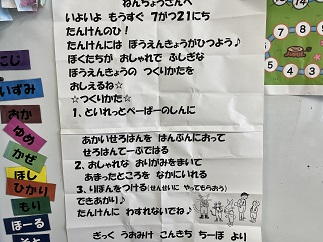 ねんちょうさんへ
いよいよ もうすぐ 7がつ21にち
たんけんのひ!
たんけんには ぼうえんきょうがひつよう♪
ぼくたちが おしゃれで ふしぎな
ぼうえんきょうの つくりかたを
おしえるね☆
☆つくりかた☆
1、といれっとぺーぱーのしんに
あかいせろはんを はんぶんにおって
せろはんてーぷではる
2、おしゃれな おりがみをまいて
あまったところを なかにいれる
3、りぼんをつける(せんせいに やってもらおう)
できあがり♪
たんけんに わすれないでね♪
ぎっく うおみけ こんきち ちーぽ より
にじ
いずみ
おか
ゆめ
かぜ
ほし
ひかり
もり
ほーる
12
13
14